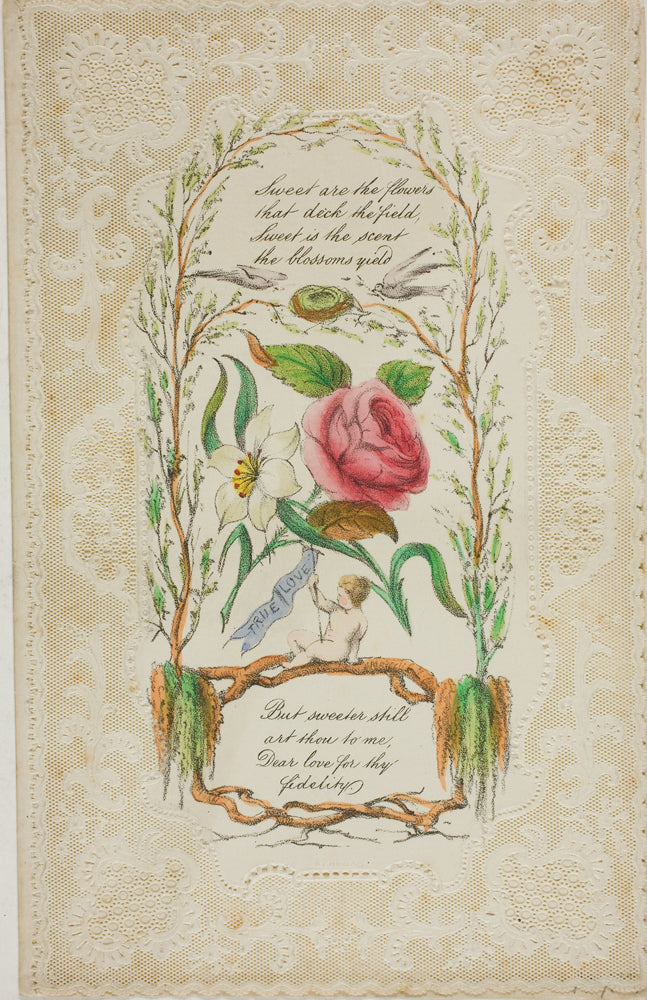 Sweet are the flowers
that deck the field,
Sweet is the scent
the blossoms yield
TRUE LOVE
But sweeter still
art thou to me,
Dear love for thy
fidelity